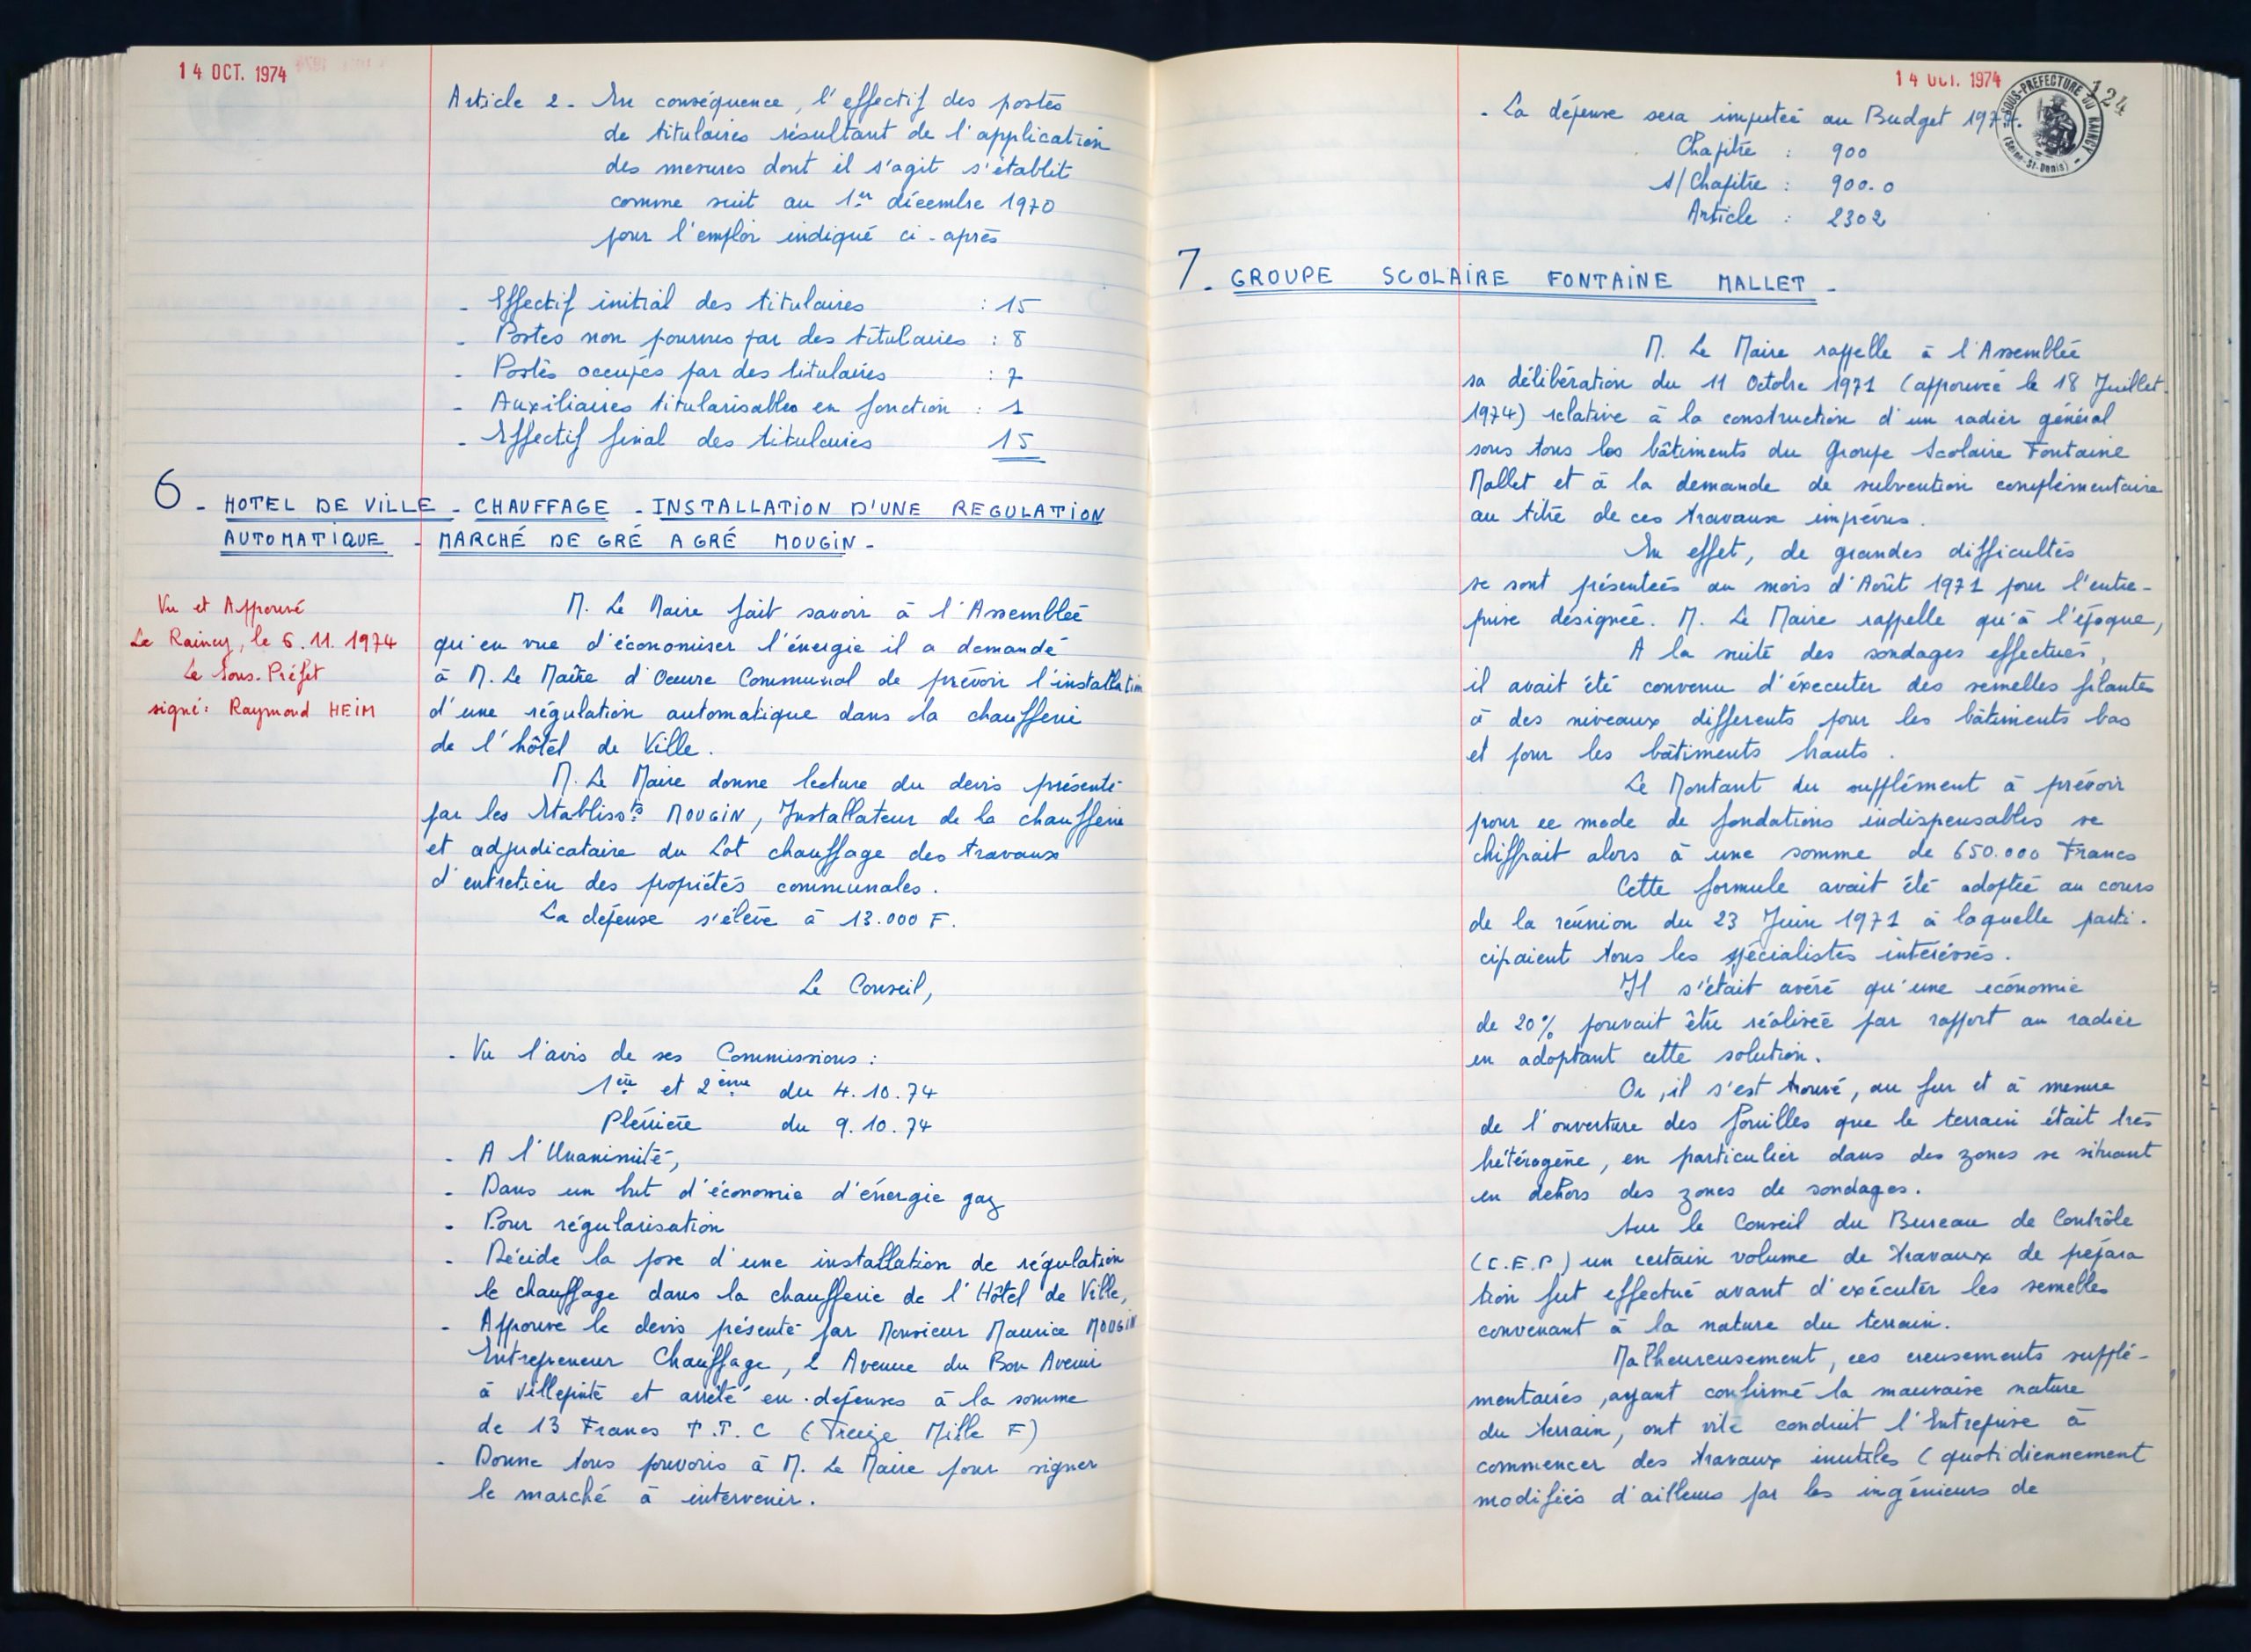 14 OCT. 1974
Article 2 - En conséquence, l'effectif des postes
de titulaires résultant de l'application
des mesures dont il s'agit s'établit
comme suit au 1er décembre 1970
pour l'emploi indiqué ci-après
- Effectif initial des titulaires : 15
- Postes non pourvus par des titulaires : 8
- Postes occupés par des titulaires : 7
- Auxiliaires titularisables en fonction : 1
- Effectif final des titulaires 15
6 - HOTEL DE VILLE - CHAUFFAGE - INSTALLATION D'UNE REGULATION
AUTOMATIQUE - MARCHÉ DE GRÉ A GRÉ MOUGIN -
Vu et Approuvé
Le Raincy, le 6.11.1974
Le Sous-Préfet
signé: Raymond HEIM
M. Le Maire fait savoir à l'Assemblée
qu'en vue d'économiser l'énergie il a demandé
à M. Le Maître d'Oeuvre Communal de prévoir l'installation
d'une régulation automatique dans la chaufferie
de l'hôtel de Ville.
M. Le Maire donne lecture du devis présenté
par les Etablissts MOUGIN, Installateur de la chaufferie
et adjudicataire du Lot chauffage des travaux
d'entretien des propiétés communales.
La dépense s'élève à 13.000 F.
Le Conseil,
- Vu l'avis de ses Commissions :
1ère et 2ème du 4.10.74
Plénière du 9.10.74
- A l'Unanimité,
- Dans un but d'économie d'énergie gaz
- Pour régularisation
- Décide la pose d'une installation de régulation
le chauffage dans la chaufferie de l'Hôtel de Ville,
- Approuve le devis présenté par Monsieur Maurice MOUGIN
Entrepreneur Chauffage, 2 Avenue du Bon Avenir
à Villepinte et arrêté en dépenses à la somme
de 13 Francs T.T.C (Treize Mille F)
- Donne tous pouvoirs à M. Le Maire pour signer
le marché à intervenir.
14 OCT. 1974
124
SOUS-PREFECTURE DU RAINCY
(Seine-St-Denis)
- La dépense sera imputée au Budget 1974.
Chapitre : 900
s/Chapitre : 900.0
Article : 2302
7 - GROUPE SCOLAIRE FONTAINE MALLET -
M. Le Maire rappelle à l'Assemblée
sa délibération du 11 Octobre 1971 (approuvée le 18 Juillet
1974) relative à la construction d'un radier général
sous tous les bâtiments du Groupe Scolaire Fontaine
Mallet et à la demande de subvention complémentaire
au titre de ces travaux imprévus.
En effet, de grandes difficultés
se sont présentées au mois d'Août 1971 pour l'entre-
prise désignée. M. Le Maire rappelle qu'à l'époque,
A la suite des sondages effectués,
il avait été convenu d'éxecuter des semelles filantes
à des niveaux differents pour les bâtiments bas
et pour les bâtiments hauts.
Le Montant du supplément à prévoir
pour ce mode de fondations indispensables se
chiffrait alors à une somme de 650.000 Francs
Cette formule avait été adoptée au cours
de la réunion du 23 Juin 1971 à laquelle parti-
cipaient tous les spécialistes intéréssés.
Il s'était avéré qu'une économie
de 20% pouvait être réalisée par rapport au radier
en adoptant cette solution.
Or, il s'est trouvé, au fur et à mesure
de l'ouverture des fouilles que le terrain était très
hétérogène, en particulier dans des zones se situant
en dehors des zones de sondages.
Sur le Conseil du Bureau de Contrôle
(C.E.P) un certain volume de travaux de prépara
tion fut effectué avant d'exécuter les semelles
convenant à la nature du terrain.
Malheureusement, ces creusements supplé-
mentaires, ayant confirmé la mauvaise nature
du terrain, ont vite conduit l'Entreprise à
commencer des travaux inutiles (quotidiennement
modifiés d'ailleurs par les ingénieurs de